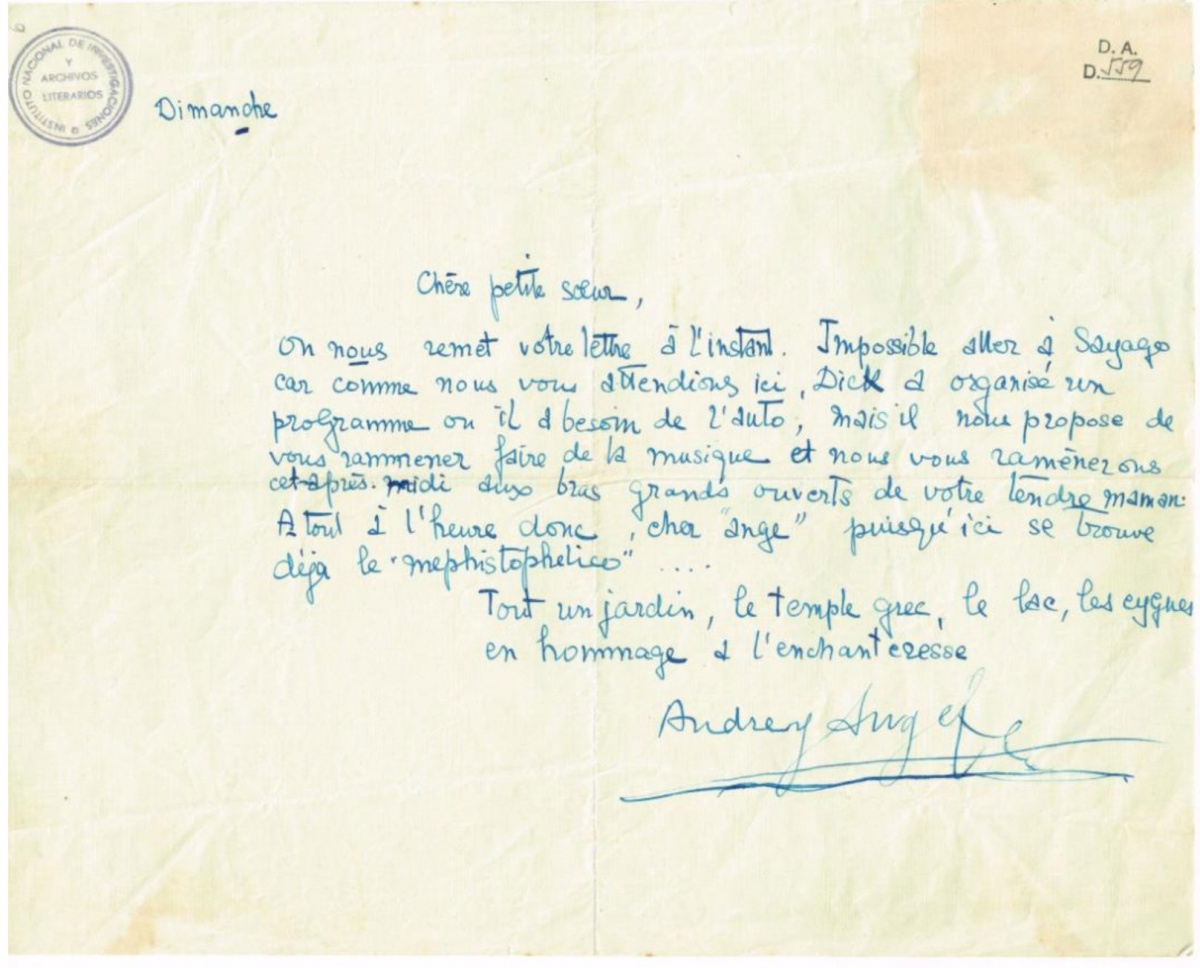 INSTITUTO NACIONAL DE INVESTIGACIONES
Y
ARCHIVOS
LITERARIOS
D. A.
D. 559
Dimanche
Chère petite sœur,
On nous remet votre lettre à l'instant. Impossible aller à Sayago
car comme nous vous attendions ici, Dick a organisé un
programme ou il a besoin de l'auto, mais il nous propose de
vous rammener faire de la musique et nous vous ramènerons
cet après-midi aux bras grands ouverts de votre tendre maman.
A tout à l'heure donc, cher "ange" puisqu'ici se trouve
déjà le "mephistophelico" ....
Tout un jardin, le temple grec, le lac, les cygnes
en hommage a l'enchanteresse
Audrey